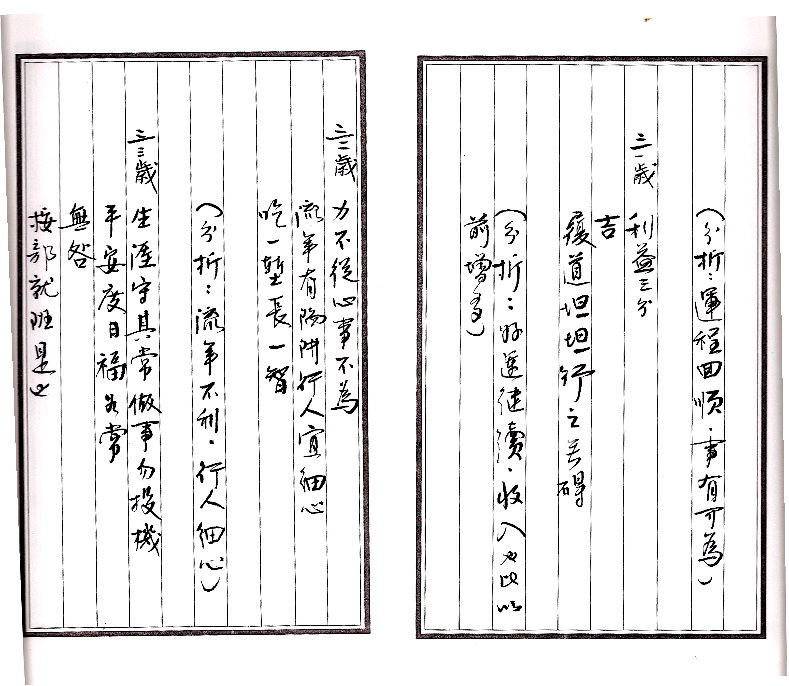 (分析：運程回順．事有可為)
三一歲 利益三分
吉
履道坦坦行之無碍
(分析：好運継續．收入也比以
前增多)
三二歲 力不從心事不為
流年有陷阱行人宜細心
吃一塹長一智
(分析：流年不利．行人細心)
三三歲 生涯守其常做事勿投機
平安度日福為常
無咎
按部就班是也